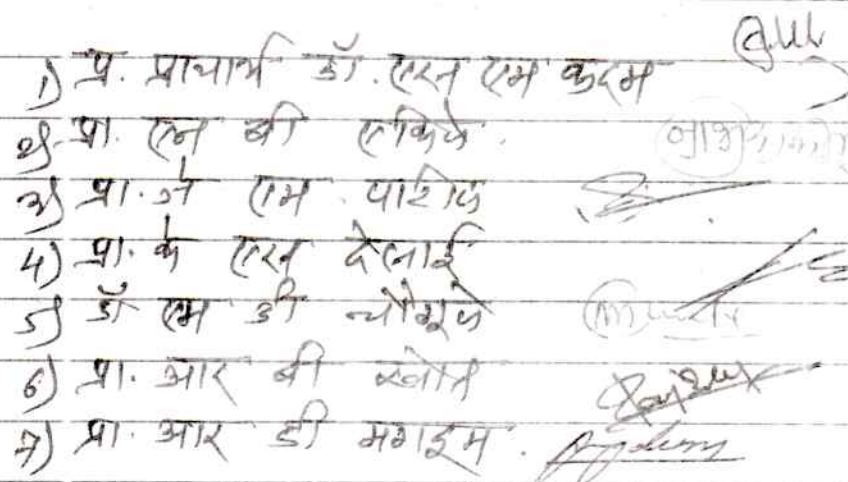 1) प्र. प्राचार्य डॉ. एस एम कदम
2) प्रा. एन बी एकिले.
3) प्रा. जे एम. पाटील
4) प्रा. के एस देसाई
5) डॉ एम डी चौगुले
6) प्रा. आर बी खोत
7) प्रा. आर डी मगदूम.